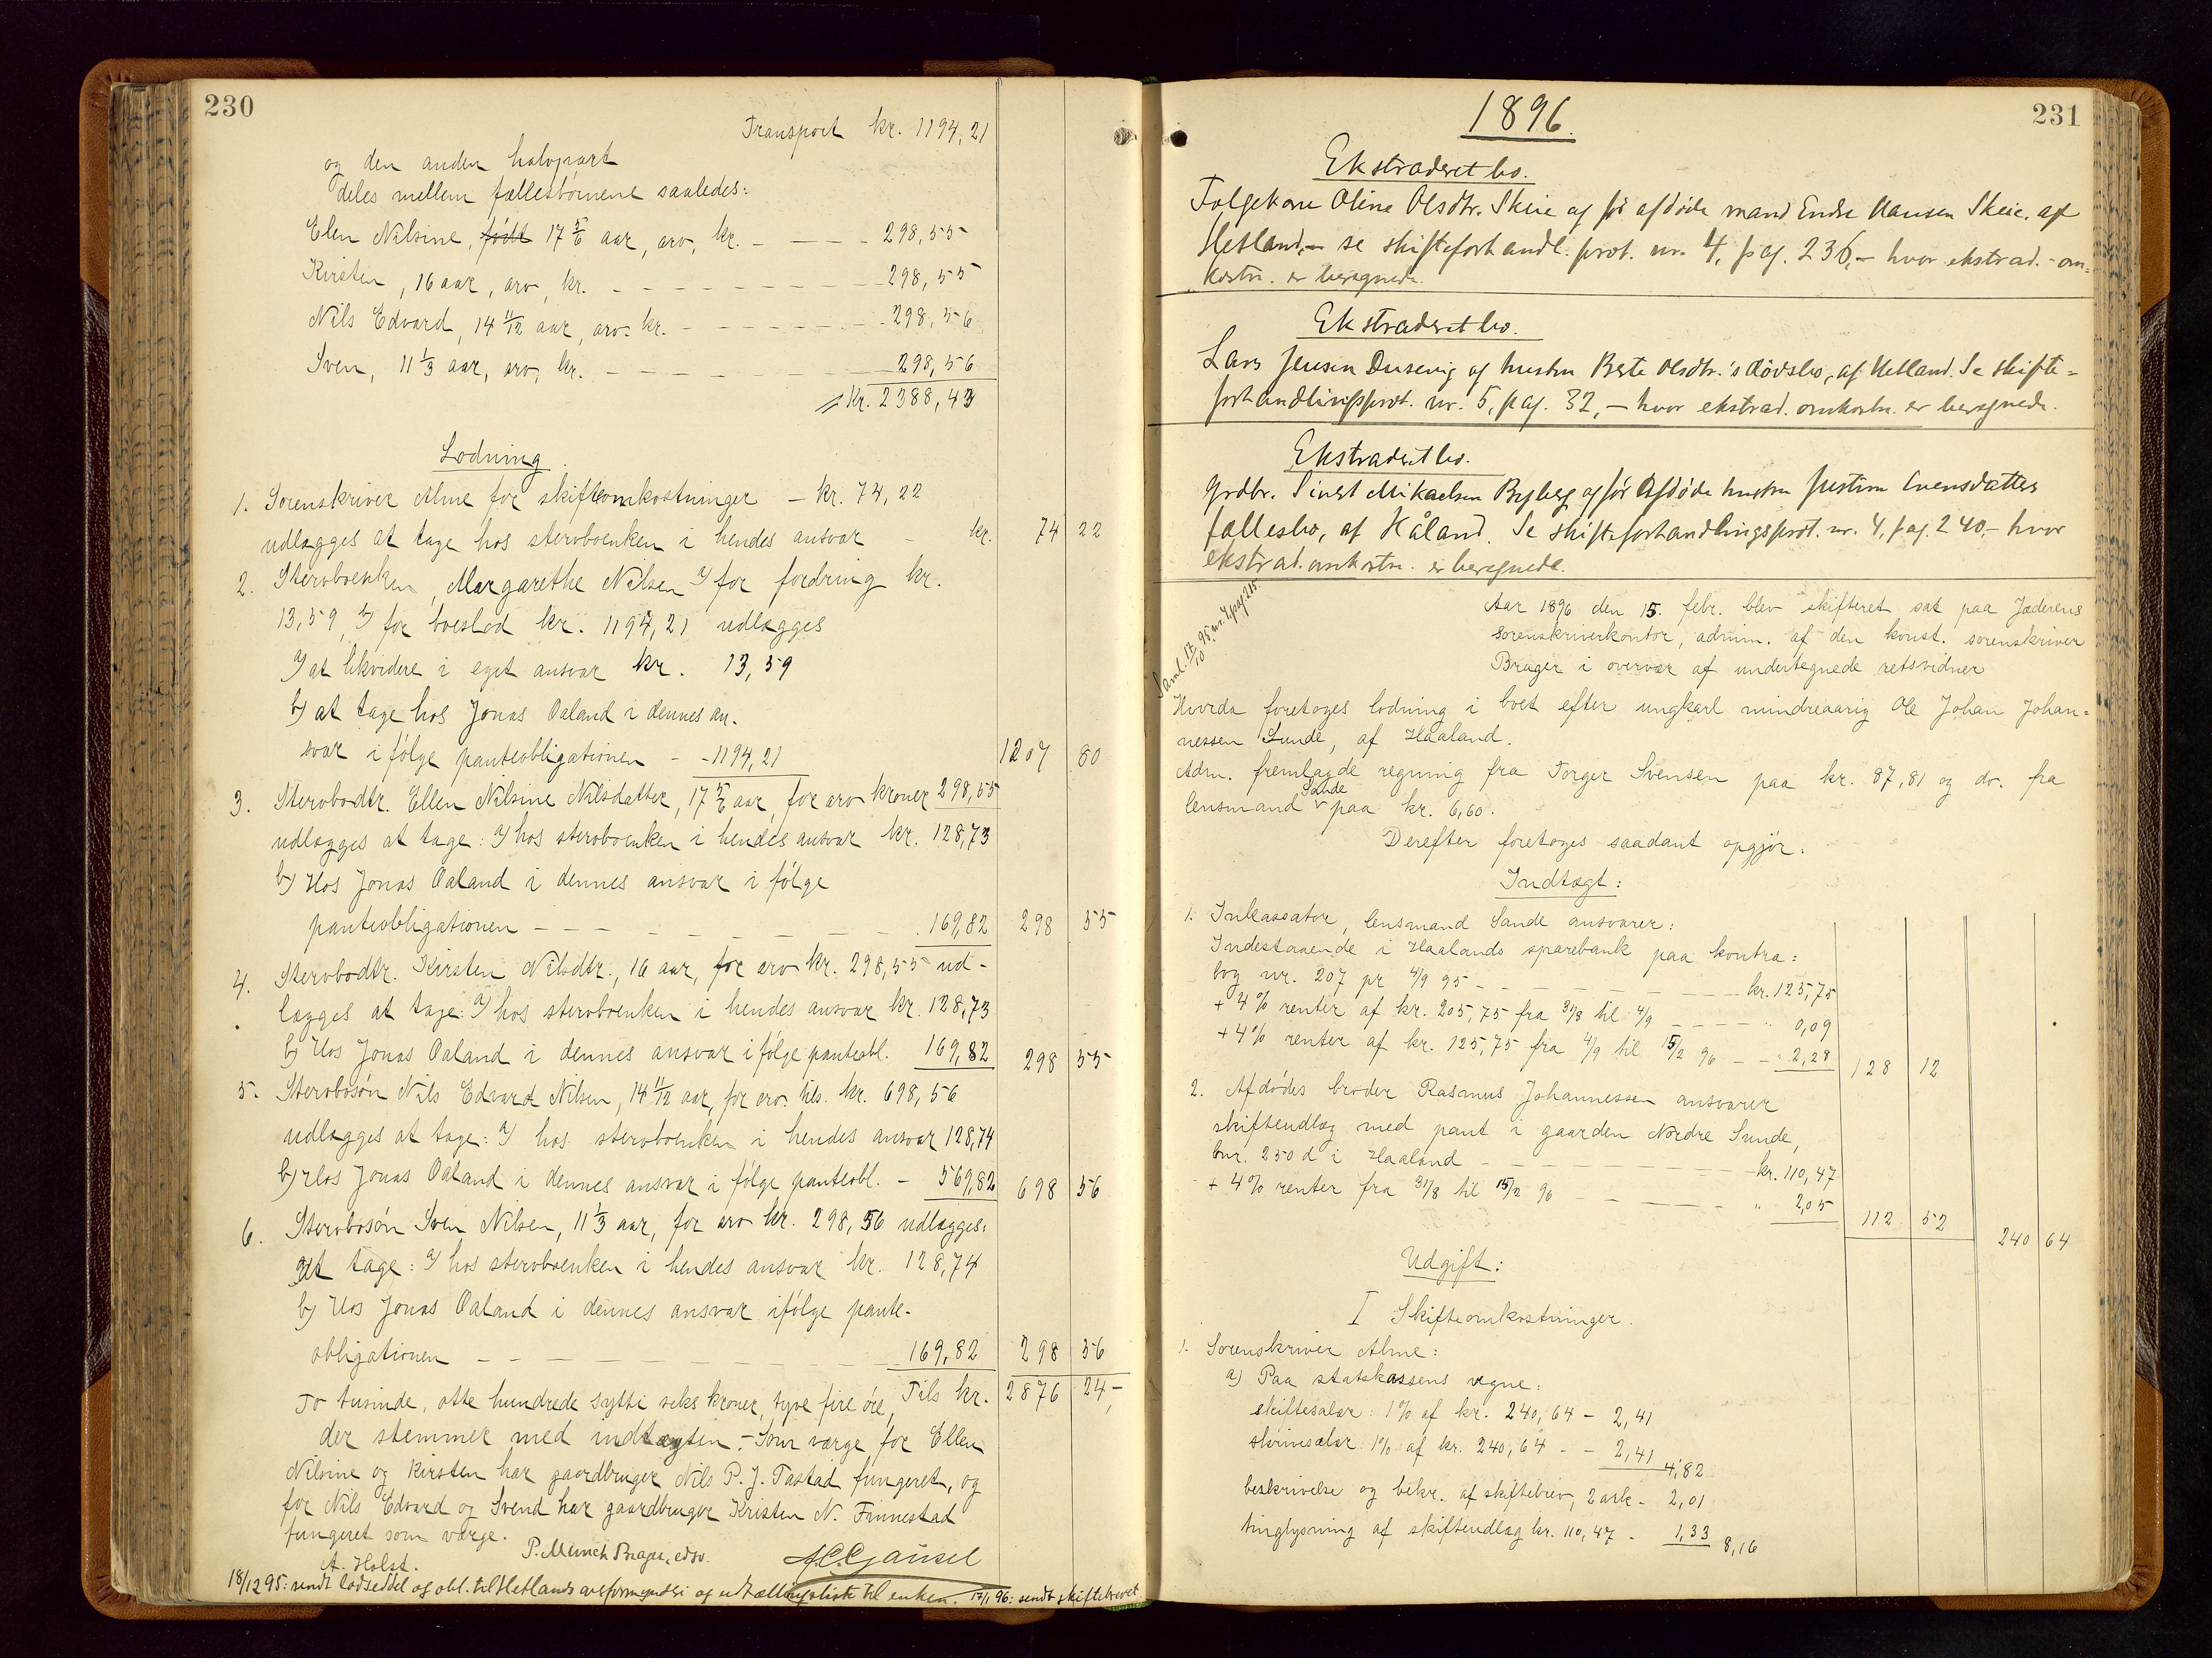 230
Transport kr. 1194,21
og den anden halvpart
deles mellem fællesbørnene saaledes:
Elen Nilsine, født 17 5/6 aar, arv, kr. - - - - 298,55
Kirsten, 16 aar, arv, kr. - - - - - - - - - 298,55
Nils Edvard, 14 11/12 aar, arv kr. - - - - - - - 298,56
Sven, 11 1/3 aar, arv, kr. - - - - - - - - 298,56
Kr. 2388,43
Lodning.
1. Sorenskriver Alme for skifteomkostninger - kr. 74,22
udlægges at tage hos stervboenken i hendes ansvar - kr. 74 22
2. Stervboenken, Margarethe Nilsen a) for fordring kr.
13,59, b) for boeslod kr. 1194,21 udlægges
a) at likvidere i eget ansvar kr. 13,59
b) at tage hos Jonas Oaland i dennes an-
svar i følge panteobligationen - -1194,21 1207 80
3. Stervbodtr. Ellen Nilsine Nilsdatter, 17 5/6 aar, for arv kroner 298,55
udlægges at tage: a) hos stervboenken i hendes ansvar kr. 128,73
b) Hos Jonas Oaland i dennes ansvar i følge
panteobligationen - - - - - - - - - 169,82 298 55
4. Stervbodtr. Kirsten Nilsdtr., 16 aar, for arv kr. 298,55 ud-
lægges at tage: a) hos stervboenken i hendes ansvar kr. 128,73
b) Hos Jonas Oaland i dennes ansvar ifølge panteobl. 169,82 298 55
5. Stervbosøn Nils Edvard Nilsen, 14 11/12 aar, for arv tils. kr. 698,56
udlægges at tage: a) hos stervboenken i hendes ansvar 128,74
b) Hos Jonas Oaland i dennes ansvar i følge panteobl. - 569,82 698 56
6. Stervbosøn Sven Nilsen, 11 1/3 aar, for arv kr. 298,56 udlægges:
at tage: a) hos stervboenken i hendes ansvar kr. 128,74
b) Hos Jonas Oaland i dennes ansvar ifølge pante-
obligationen - - - - - - - - - 169,82 298 56
To tusinde, otte hundrede sytti seks kroner, tyve fire øre, Tils kr. 2876 24,-
der stemmer med indtægten. - Som værge for Ellen
Nilsine og Kirsten har gaardbruger Nils P. J. Tastad fungeret, og
for Nils Edvard og Svend har gaardbruger Kristen N. Finnestad
fungeret som værge.
A. Holst. P. Munch Brager, edsv. A.C. Gausel
18/12 95: sendt lodseddel og obl. til Hetlands overformynderi og udtællingsliste til enken. 17/1 96: sendt skiftebrevet
231
1896.
Ekstraderet bo.
Folgekone Oline Olsdtr. Skeie og før afdøde mand Endre Hansen Skeie, af
Hetland, - se skifteforhandl. prot. nr. 4, pag. 236, - hvor ekstrad.-om-
kostn. er beregnede.
Ekstraderet bo.
Lars Jensen Dusevig og hustru Berte Olsdtr.'s dødsbo, af Hetland. Se skifte-
forhandlingsprot. nr. 5, pag. 32, - hvor ekstrad. omkostn. er beregnede.
Ekstraderet bo.
Grdbr. Sivert Mikaelsen Byberg og før afdøde hustru Justine Evensdatters
fællesbo, af Håland. Se skifteforhandlingsprot. nr. 4, pag. 240,- hvor
ekstrad. omkostn. er beregnede.
Saml. 17/10 95, nr. 4 pag 215.
Aar 1896 den 15. febr. blev skifteret sat paa Jæderens
sorenskriverkontor, admin. af den konst. sorenskriver
Brager i overvær af undertegnede retsvidner
Hvorda foretoges lodning i boet efter ungkarl mindreaarig Ole Johan Johan-
nessen Sunde, af Haaland.
Adm. fremlagde regning fra Torger Svensen paa kr. 87,81 og do. fra
lensmand Sande paa kr. 6,60.
Derefter foretoges saadant opgjør:
Indtægt:
1. Inkassator, lensmand Sande ansvarer:
Indestaaende i Haalands sparebank paa kontra-
bog nr. 207 pr 4/9 95 - - - - - - - - kr. 125,75
+ 4% renter af kr. 205,75 fra 31/8 til 4/9 - - - - " 0,09
+ 4% renter af kr. 125,75 fra 4/9 til 15/2 96 - - " 2,28 128 12
2. Afdødes broder Rasmus Johannessen ansvarer
skifteudlæg med pant i gaarden Nordre Sunde,
bnr. 250 d i Haaland - - - - - - - - - kr. 110,47
+ 4% renter fra 31/8 til 15/2 96 - - - - - " 2,05 112 52 240 64
Udgift:
I Skifteomkostninger.
1. Sorenskriver Alme:
a) Paa statskassens vegne:
skiftesalær: 1% af kr. 240,64 - 2,41
skrivesalær 1% af kr. 240,64 - - 2,41 4,82
beskrivelse og bekr. af skiftebrev, 2 ark - 2,01
tinglysning af skifteudlæg kr. 110,47 - 1,33 8,16